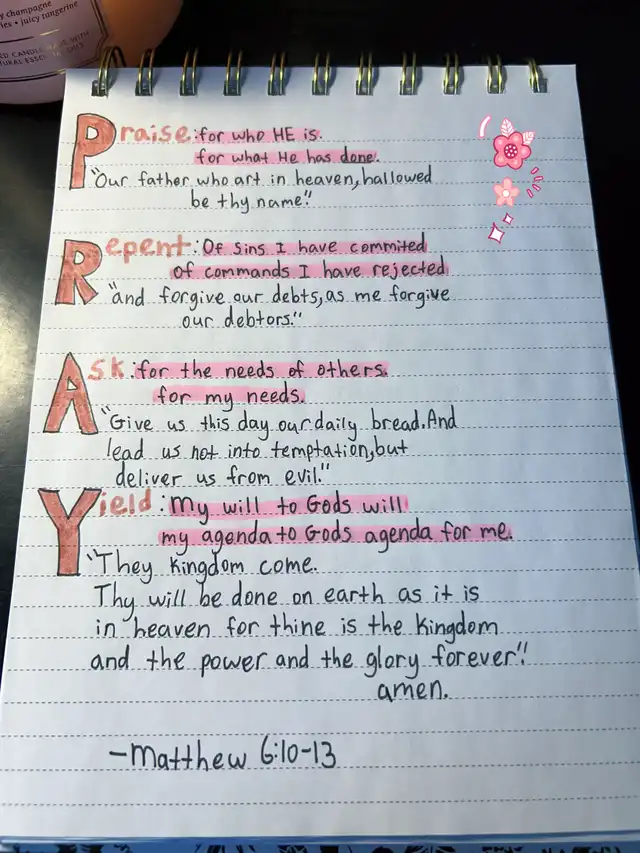 y champagne
ies • juicy tangerine
Praise: for who HE is.
for what He has done.
"Our father who art in heaven, hallowed
be thy name."
Repent: Of Sins I have commited
of commands I have rejected
"and forgive our debts, as me forgive
our debtors."
Ask: for the needs of others.
for my needs.
"Give us this day our daily bread. And
lead us not into temptation, but
deliver us from evil."
Yield: My will to Gods will
my agenda to Gods agenda for me.
"They Kingdom come.
Thy will be done on earth as it is
in heaven for thine is the Kingdom
and the power and the glory forever."
amen.
-Matthew 6:10-13